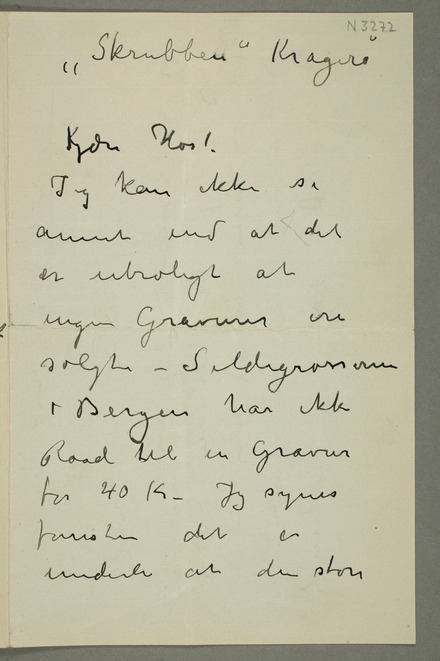 N 3272
„Skrubben“ Kragerø
Kjære Høst.
Jeg kan ikke se
annet end at det
er utroligt at
ingen Gravurer ere
solgte – Sildegrossererne
i Bergen har ikke
Raad til en Gravur
for 40 Kr – Jeg synes
det er
underli at den store